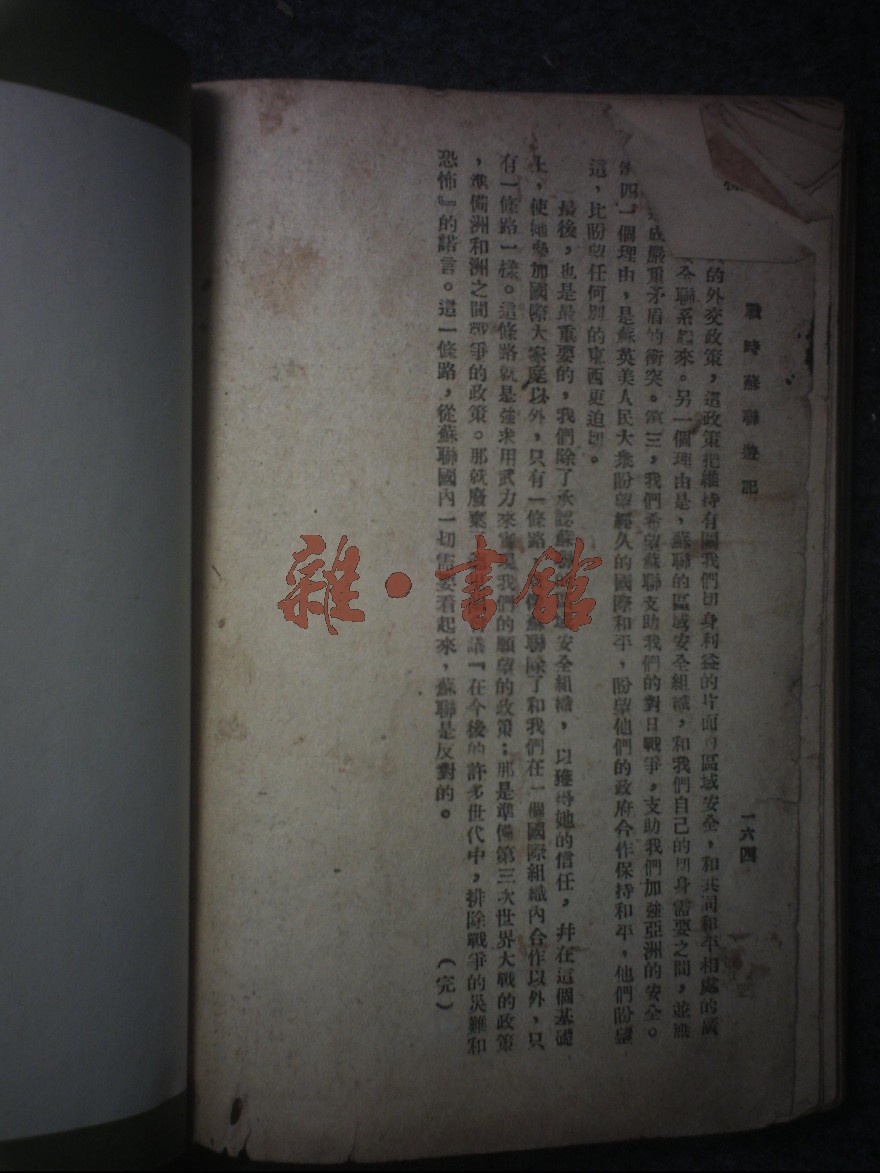 戰時蘇聯遊記
一六四
的外交政策，這政策把維持有關我們切身利益的片面的區域安全，和共同和平相處的廣
全聯系起來。另一個理由是，蘇聯的區域安全組織，和我們自己的切身需要之間，並無
嚴重矛盾的衝突。第三，我們希望蘇聯支助我們的對日戰爭，支助我們加強亞洲的安全。
四一個理由，是蘇英美人民大衆盼望經久的國際和平，盼望他們的政府合作保持和平，他們盼望
這，比盼望任何別的東西更迫切。
最後，也是最重要的，我們除了承認蘇聯的區域安全組織，以獲得她的信任，幷在這個基礎
上，使她參加國際大家庭以外，只有一條路，蘇聯除了和我們在一個國際組織內合作以外，只
有一條路一樣。這條路就是強求用武力來實現我們的願望的政策；那是準備第三次世界大戰的政策
，準備洲和洲之間戰爭的政策。那就廢棄議『在今後的許多世代中，排除戰爭的災難和
恐怖』的諾言。這一條路，從蘇聯國內一切佈要看起來，蘇聯是反對的。
（完）
雜·書館